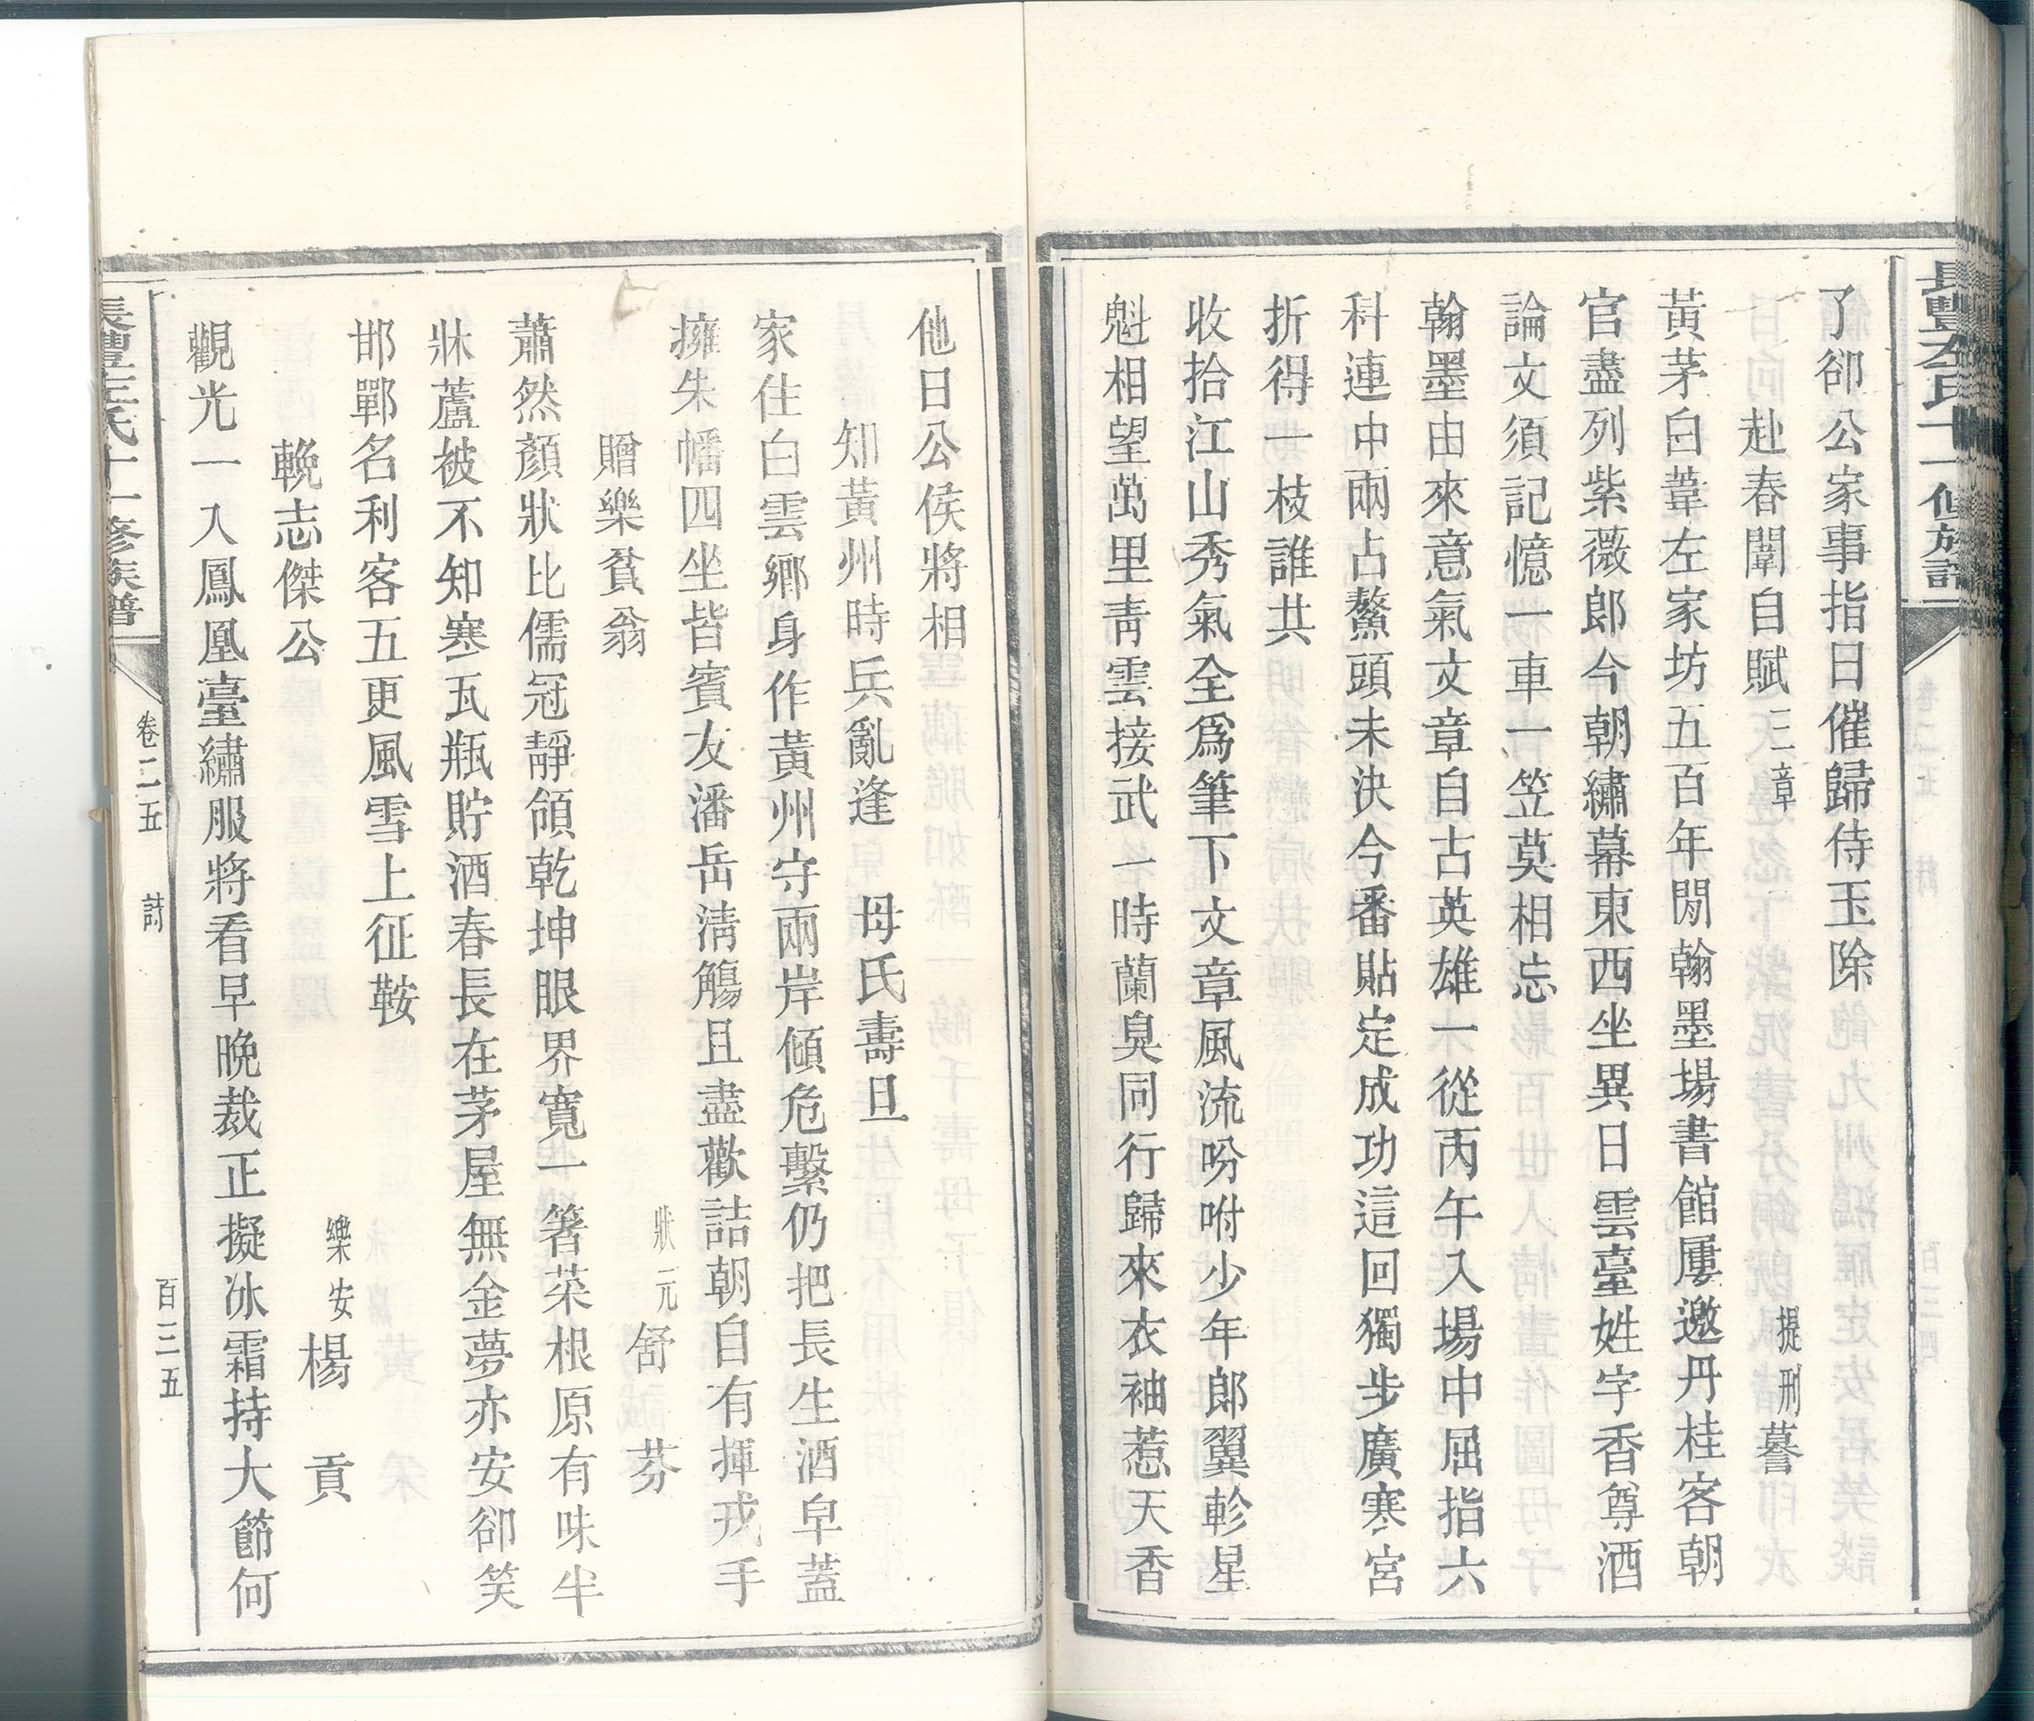 長豐左氏十一修族譜
了卻公家事指日催歸侍玉除
赴春闈自賦三章 提刑謩
黃茅白葦左家坊五百年閒翰墨場書館屢邀丹桂客朝
官盡列紫薇郎今朝繡幕東西坐異日雲臺姓字香尊酒
論文須記憶一車一笠莫相忘
翰墨由來意氣文章自古英雄一從丙午入場中屈指六
科連中兩占鰲頭未決今番貼定成功這回獨步廣寒宮
折得一枝誰共
收拾江山秀氣全為筆下文章風流吩咐少年郎翼軫星
魁相望萬里青雲接武一時蘭臭同行歸來衣袖惹天香
他日公侯將相
知黃州時兵亂逢 母氏壽旦
家住白雲鄉身作黃州守兩岸傾危繫仍把長生酒皁蓋
擁朱幡四坐皆賓友潘岳清觴且盡歡詰朝自有揮戎手
贈樂貧翁 狀元舒 芬
蕭然顏狀比儒冠靜領乾坤眼界寬一箸菜根原有味半
牀蘆被不知寒瓦瓶貯酒春長在茅屋無金夢亦安卻笑
邯鄲名利客五更風雪上征鞍
輓志傑公 樂安楊 貢
觀光一入鳳凰臺繡服將看早晚裁正擬冰霜持大節何
長豐左氏十一修族譜 卷二五 詩 百三五